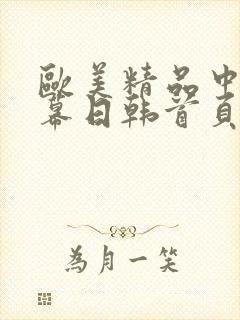 歐美精品中
幕日韩首頁
為月一笑